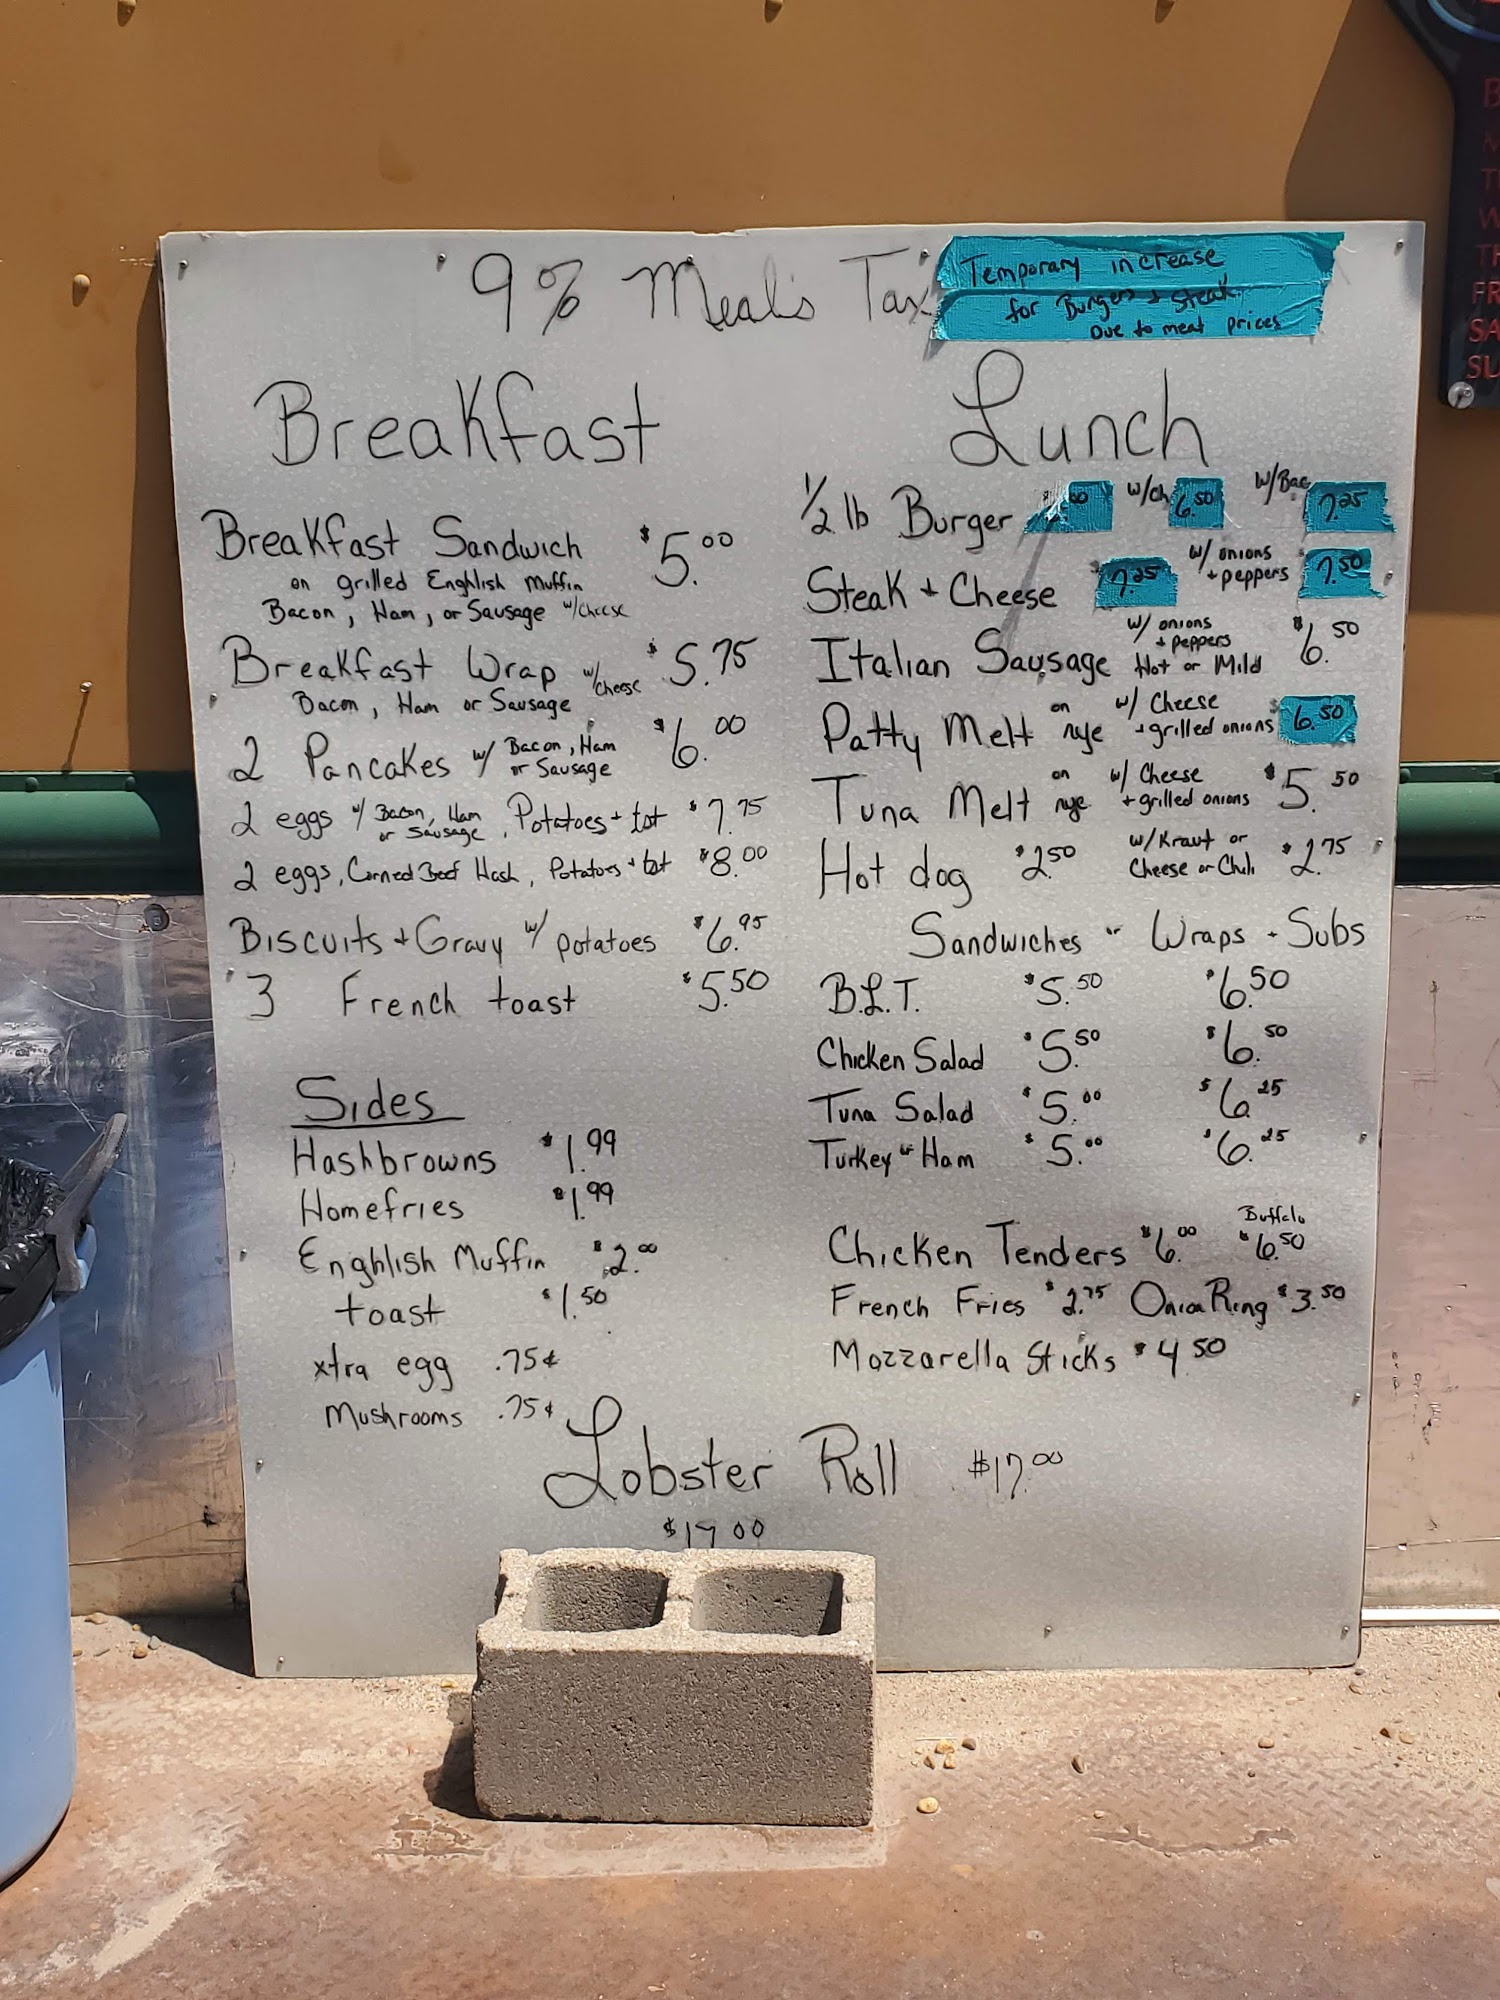 9% Meals Tax
Temporary increase
for Burgers + Steak
Due to meat prices
Breakfast
Breakfast Sandwich $5.00
on grilled Enghlish Muffin
Bacon, Ham, or Sausage w/cheese
Breakfast Wrap w/cheese $5.75
Bacon, Ham or Sausage
2 Pancakes w/ Bacon, Ham or Sausage $6.00
2 eggs w/ Bacon, Ham or Sausage, Potatoes + tst $7.75
2 eggs, Corned Beef Hash, Potatoes + tst $8.00
Biscuits + Gravy w/ potatoes $6.95
3 French toast $5.50
Sides
Hashbrowns $1.99
Homefries $1.99
Enghlish Muffin $2.00
toast $1.50
xtra egg .75¢
Mushrooms .75¢
Lunch
1/2 lb Burger w/ch 6.50 w/Bac 7.25
Steak + Cheese 7.25 w/ onions + peppers 7.50
Italian Sausage w/ onions + peppers Hot or Mild $6.50
Patty Melt on rye w/ Cheese + grilled onions 6.50
Tuna Melt on rye w/ Cheese + grilled onions $5.50
Hot dog $2.50 w/Kraut or Cheese or Chili $2.75
Sandwiches or Wraps - Subs
B.L.T. $5.50 $6.50
Chicken Salad $5.50 $6.50
Tuna Salad $5.00 $6.25
Turkey or Ham $5.00 $6.25
Chicken Tenders $6.00 Buffalo $6.50
French Fries $2.75 Onion Ring $3.50
Mozzarella Sticks $4.50
Lobster Roll $17.00
$17.00